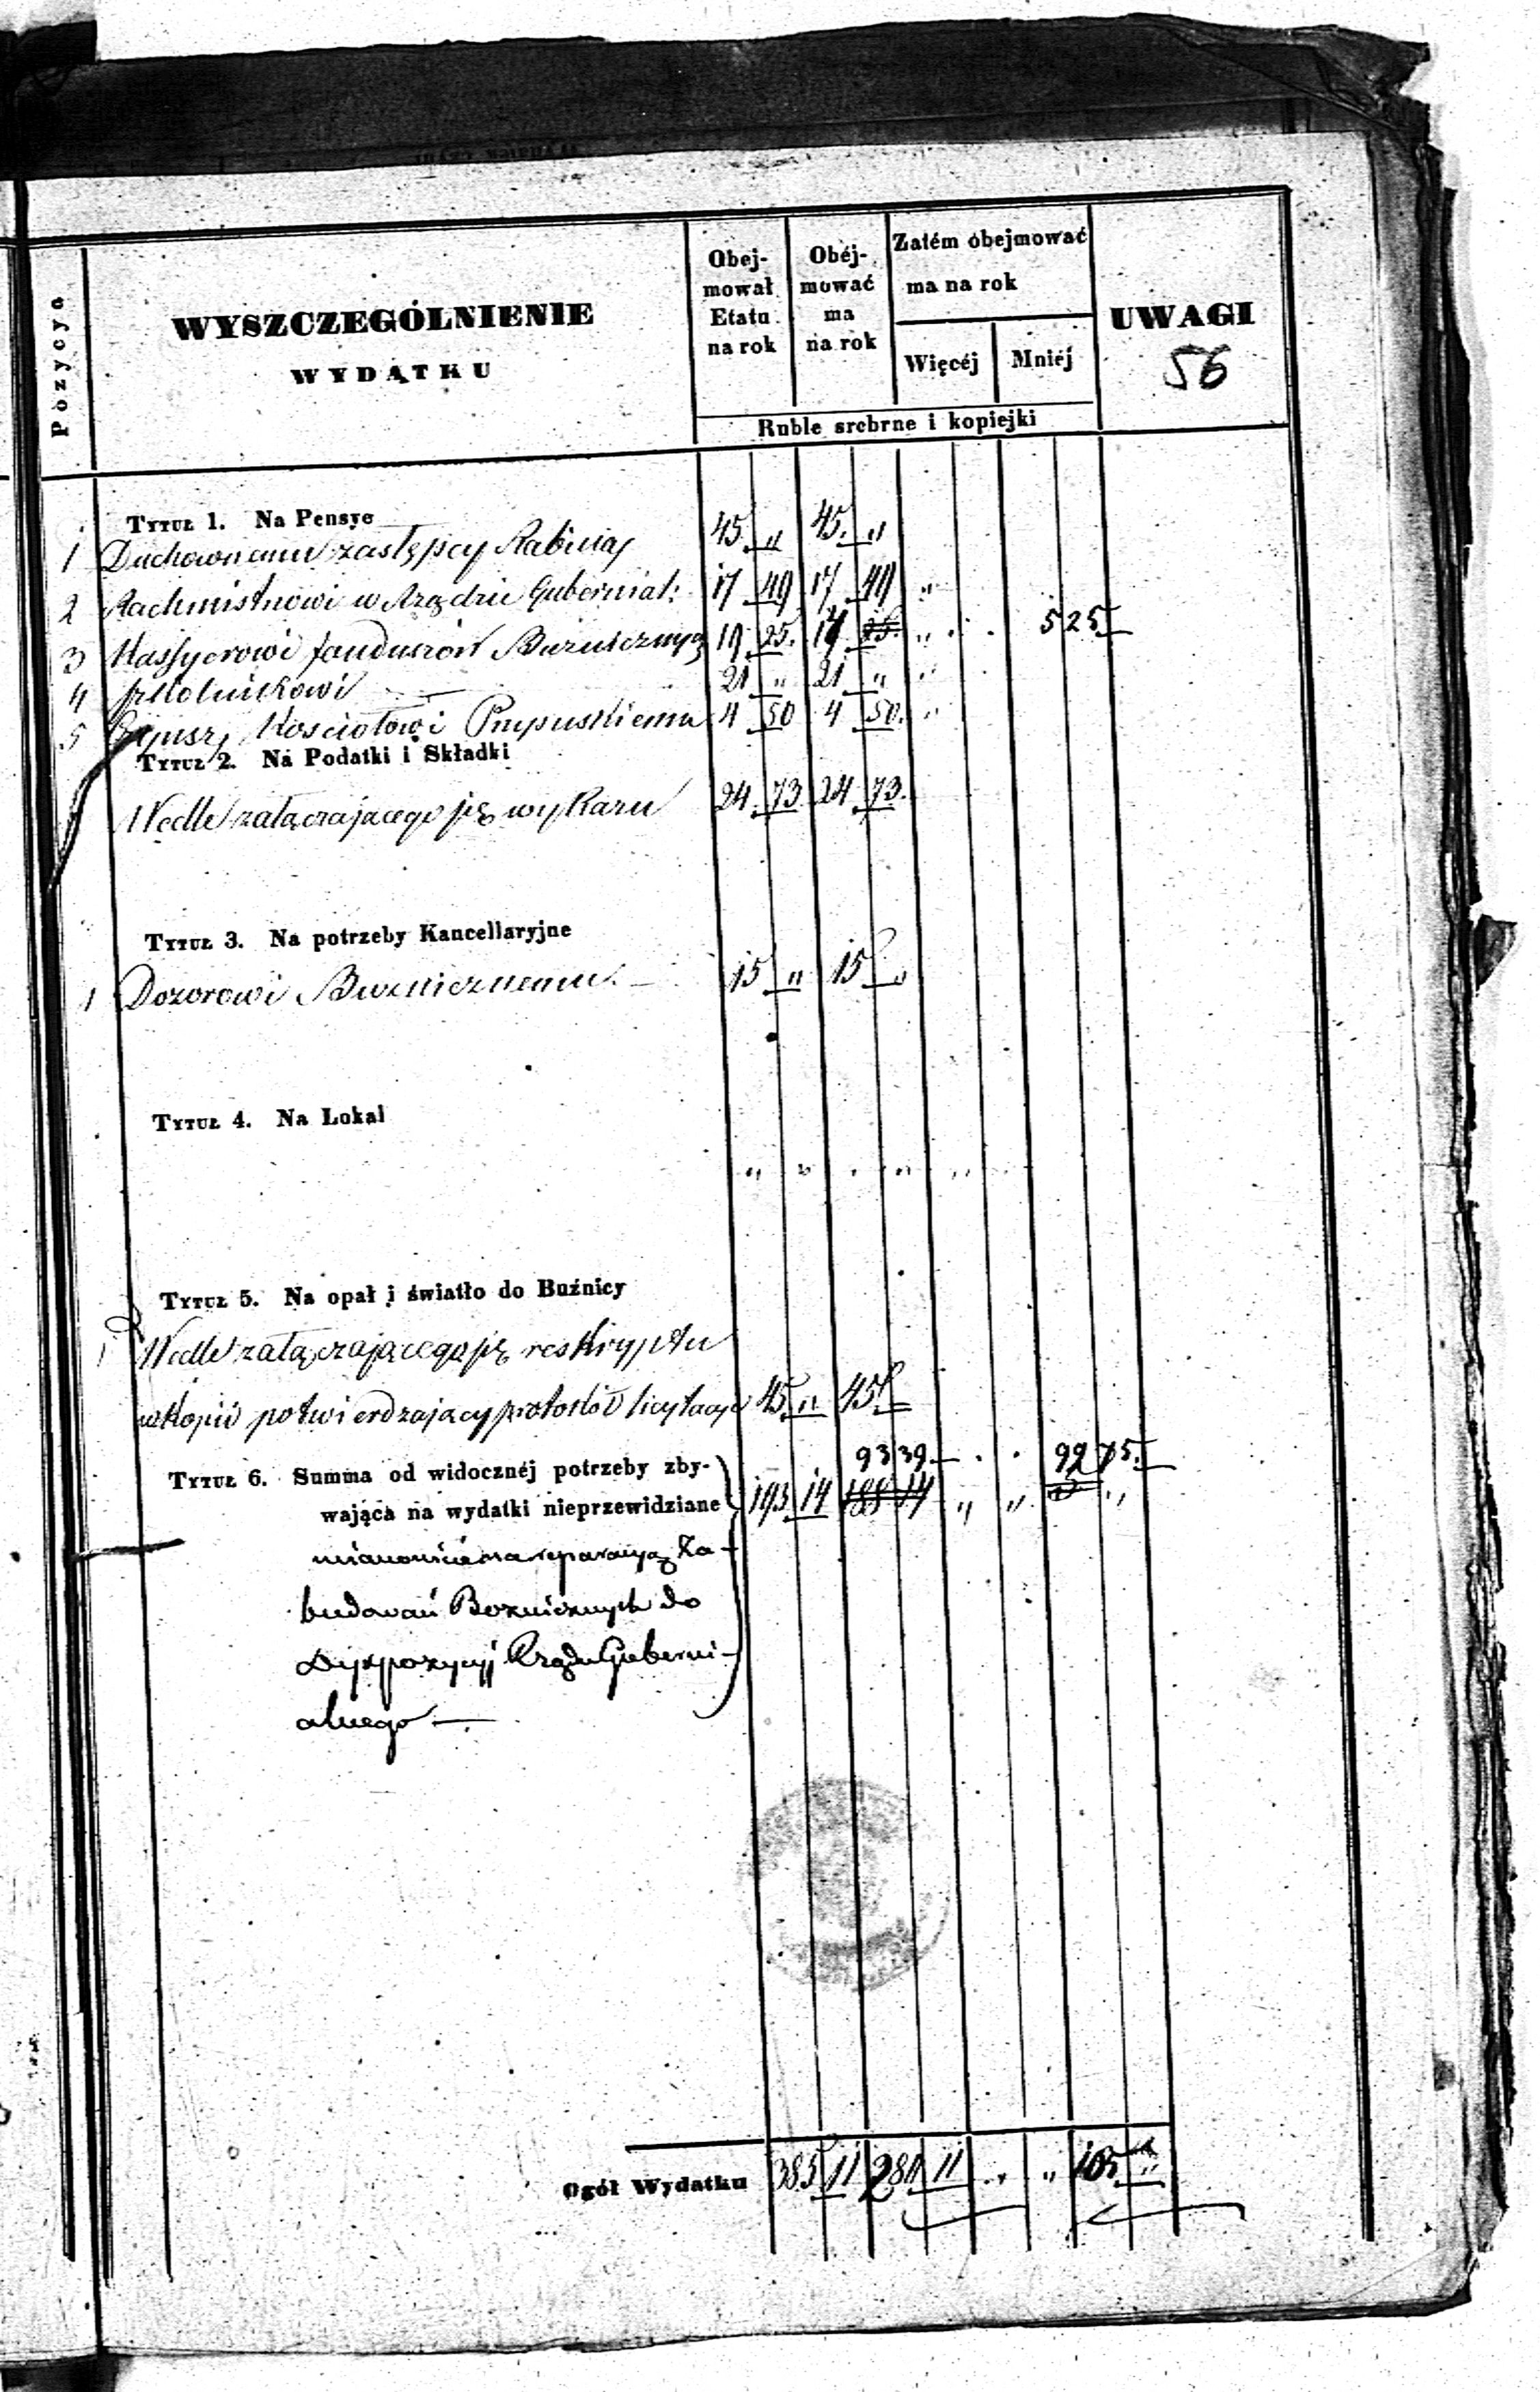 Pozycye
WYSZCZEGÓLNIENIE
WYDATKU
Obej-
mował
Etatu
na rok
Obéj-
mować
ma
na rok
Zatém obejmować
ma na rok
Więcéj
Mniéj
UWAGI
56
Ruble srebrne i kopiejki
Tytuł 1. Na Pensye
1 Duchownemu zastępcy Rabina 45. " 45. "
2 Rachmistrzowi w Rządzie Gubernial: 17 49 17 49 "
3 Kassyerowi funduszów Buźnicznych 19 25. 14 25. " 5 25.
4 Szkolnikowi 21 " 21 " "
5 Czynszu Kościołowi 4 50 4 50. "
Tytuł 2. Na Podatki i Składki
Wedle załączającego się wykazu 24. 73 24 73.
Tytuł 3. Na potrzeby Kancellaryjne
1 Dozorowi Buźnicznemu 15 " 15 "
Tytuł 4. Na Lokal
" " . " "
Tytuł 5. Na opał i światło do Buźnicy
1 Wedle załączającego się reskryptu
w kopii potwierdzający protokół licytacyi 45 " 45
93 39 . . 92 75.
Tytuł 6. Summa od widocznéj potrzeby zby-
wająca na wydatki nieprzewidziane 193 14 188 14 " " "
mianowicie na reparacyą Za-
budowań Bożnicznych do
Dyspozycyi Rządu Guberni-
alnego
Ogół Wydatku 385 11 280 11 " " 105 "